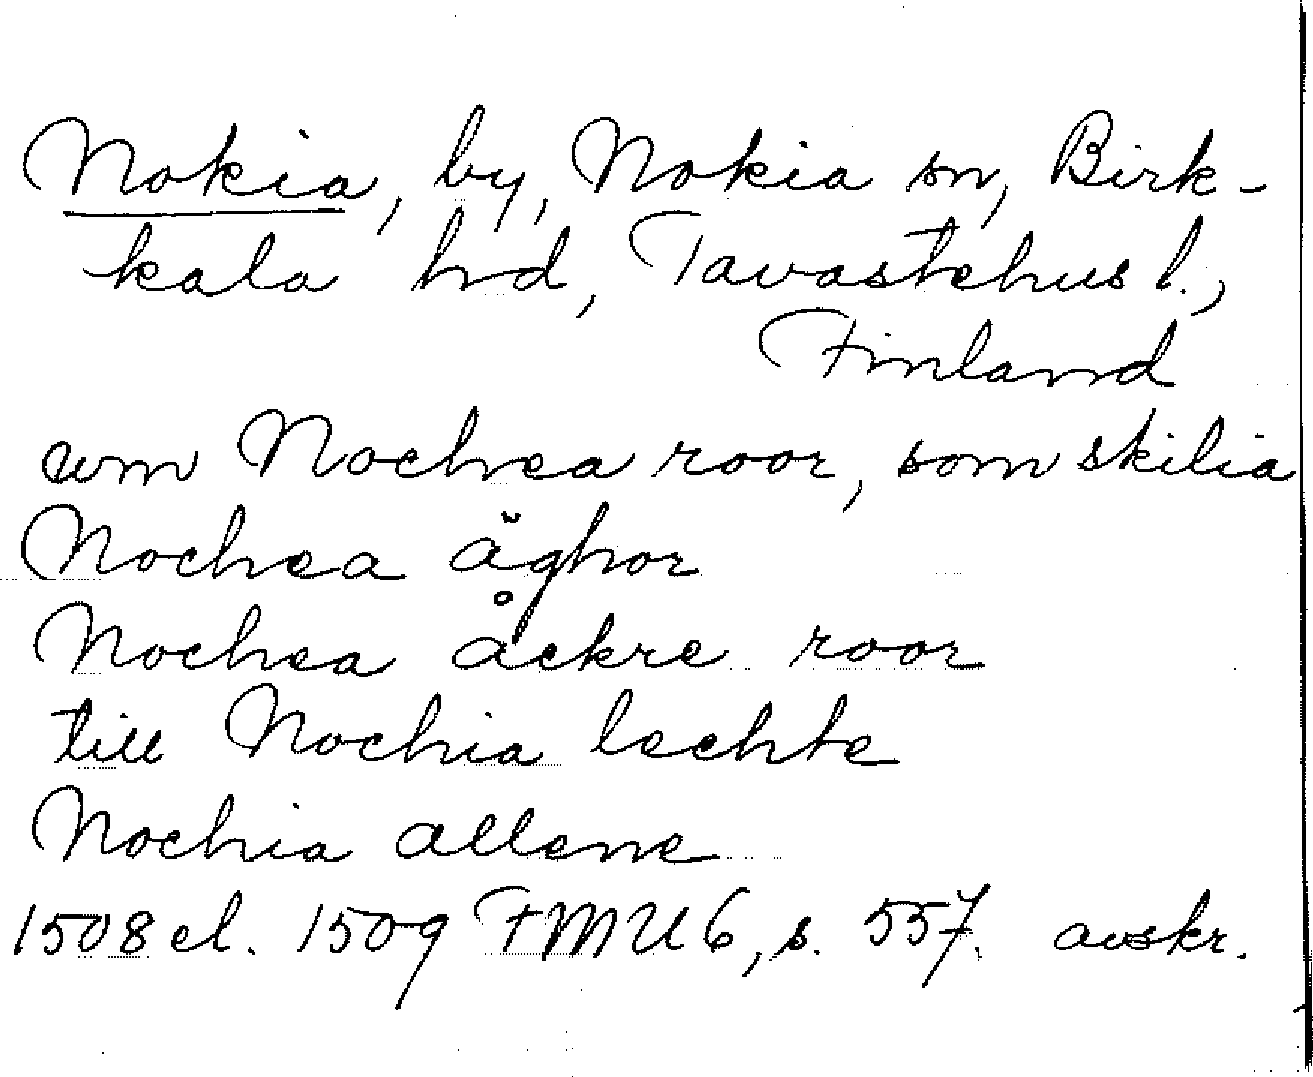 Nokia, by, Nokia sn, Birk-
kala hrd, Tavastehus l.,
Finland
um Nochea roor, som skilia
Nochea äghor
Nochea åckre roor
till Nochia lechte
Nochia allene
1508 el. 1509 FMU 6, s. 557. avskr.